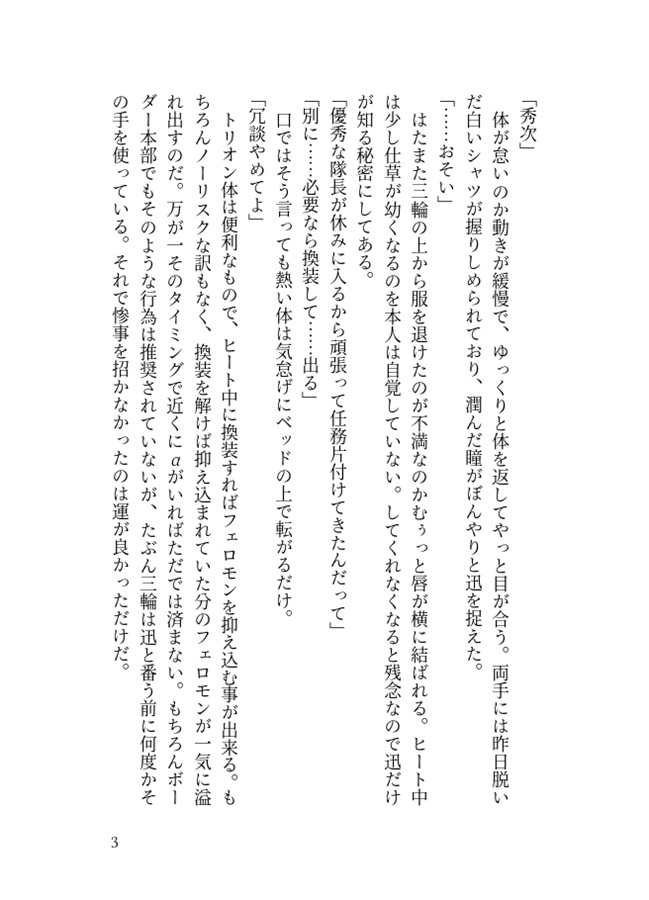 「秀次」
　体が怠いのか動きが緩慢で、ゆっくりと体を返してやっと目が合う。両手には昨日脱い
だ白いシャツが握りしめられており、潤んだ瞳がぼんやりと迅を捉えた。
「……おそい」
　はたまた三輪の上から服を退けたのが不満なのかむぅっと唇が横に結ばれる。ヒート中
は少し仕草が幼くなるのを本人は自覚していない。してくれなくなると残念なので迅だけ
が知る秘密にしてある。
「優秀な隊長が休みに入るから頑張って任務片付けてきたんだって」
「別に……必要なら換装して……出る」
　口ではそう言っても熱い体は気怠げにベッドの上で転がるだけ。
「冗談やめてよ」
　トリオン体は便利なもので、ヒート中に換装すればフェロモンを抑え込む事が出来る。も
ちろんノーリスクな訳もなく、換装を解けば抑え込まれていた分のフェロモンが一気に溢
れ出すのだ。万が一そのタイミングで近くにαがいればただでは済まない。もちろんボー
ダー本部でもそのような行為は推奨されていないが、たぶん三輪は迅と番う前に何度かそ
の手を使っている。それで惨事を招かなかったのは運が良かっただけだ。
3